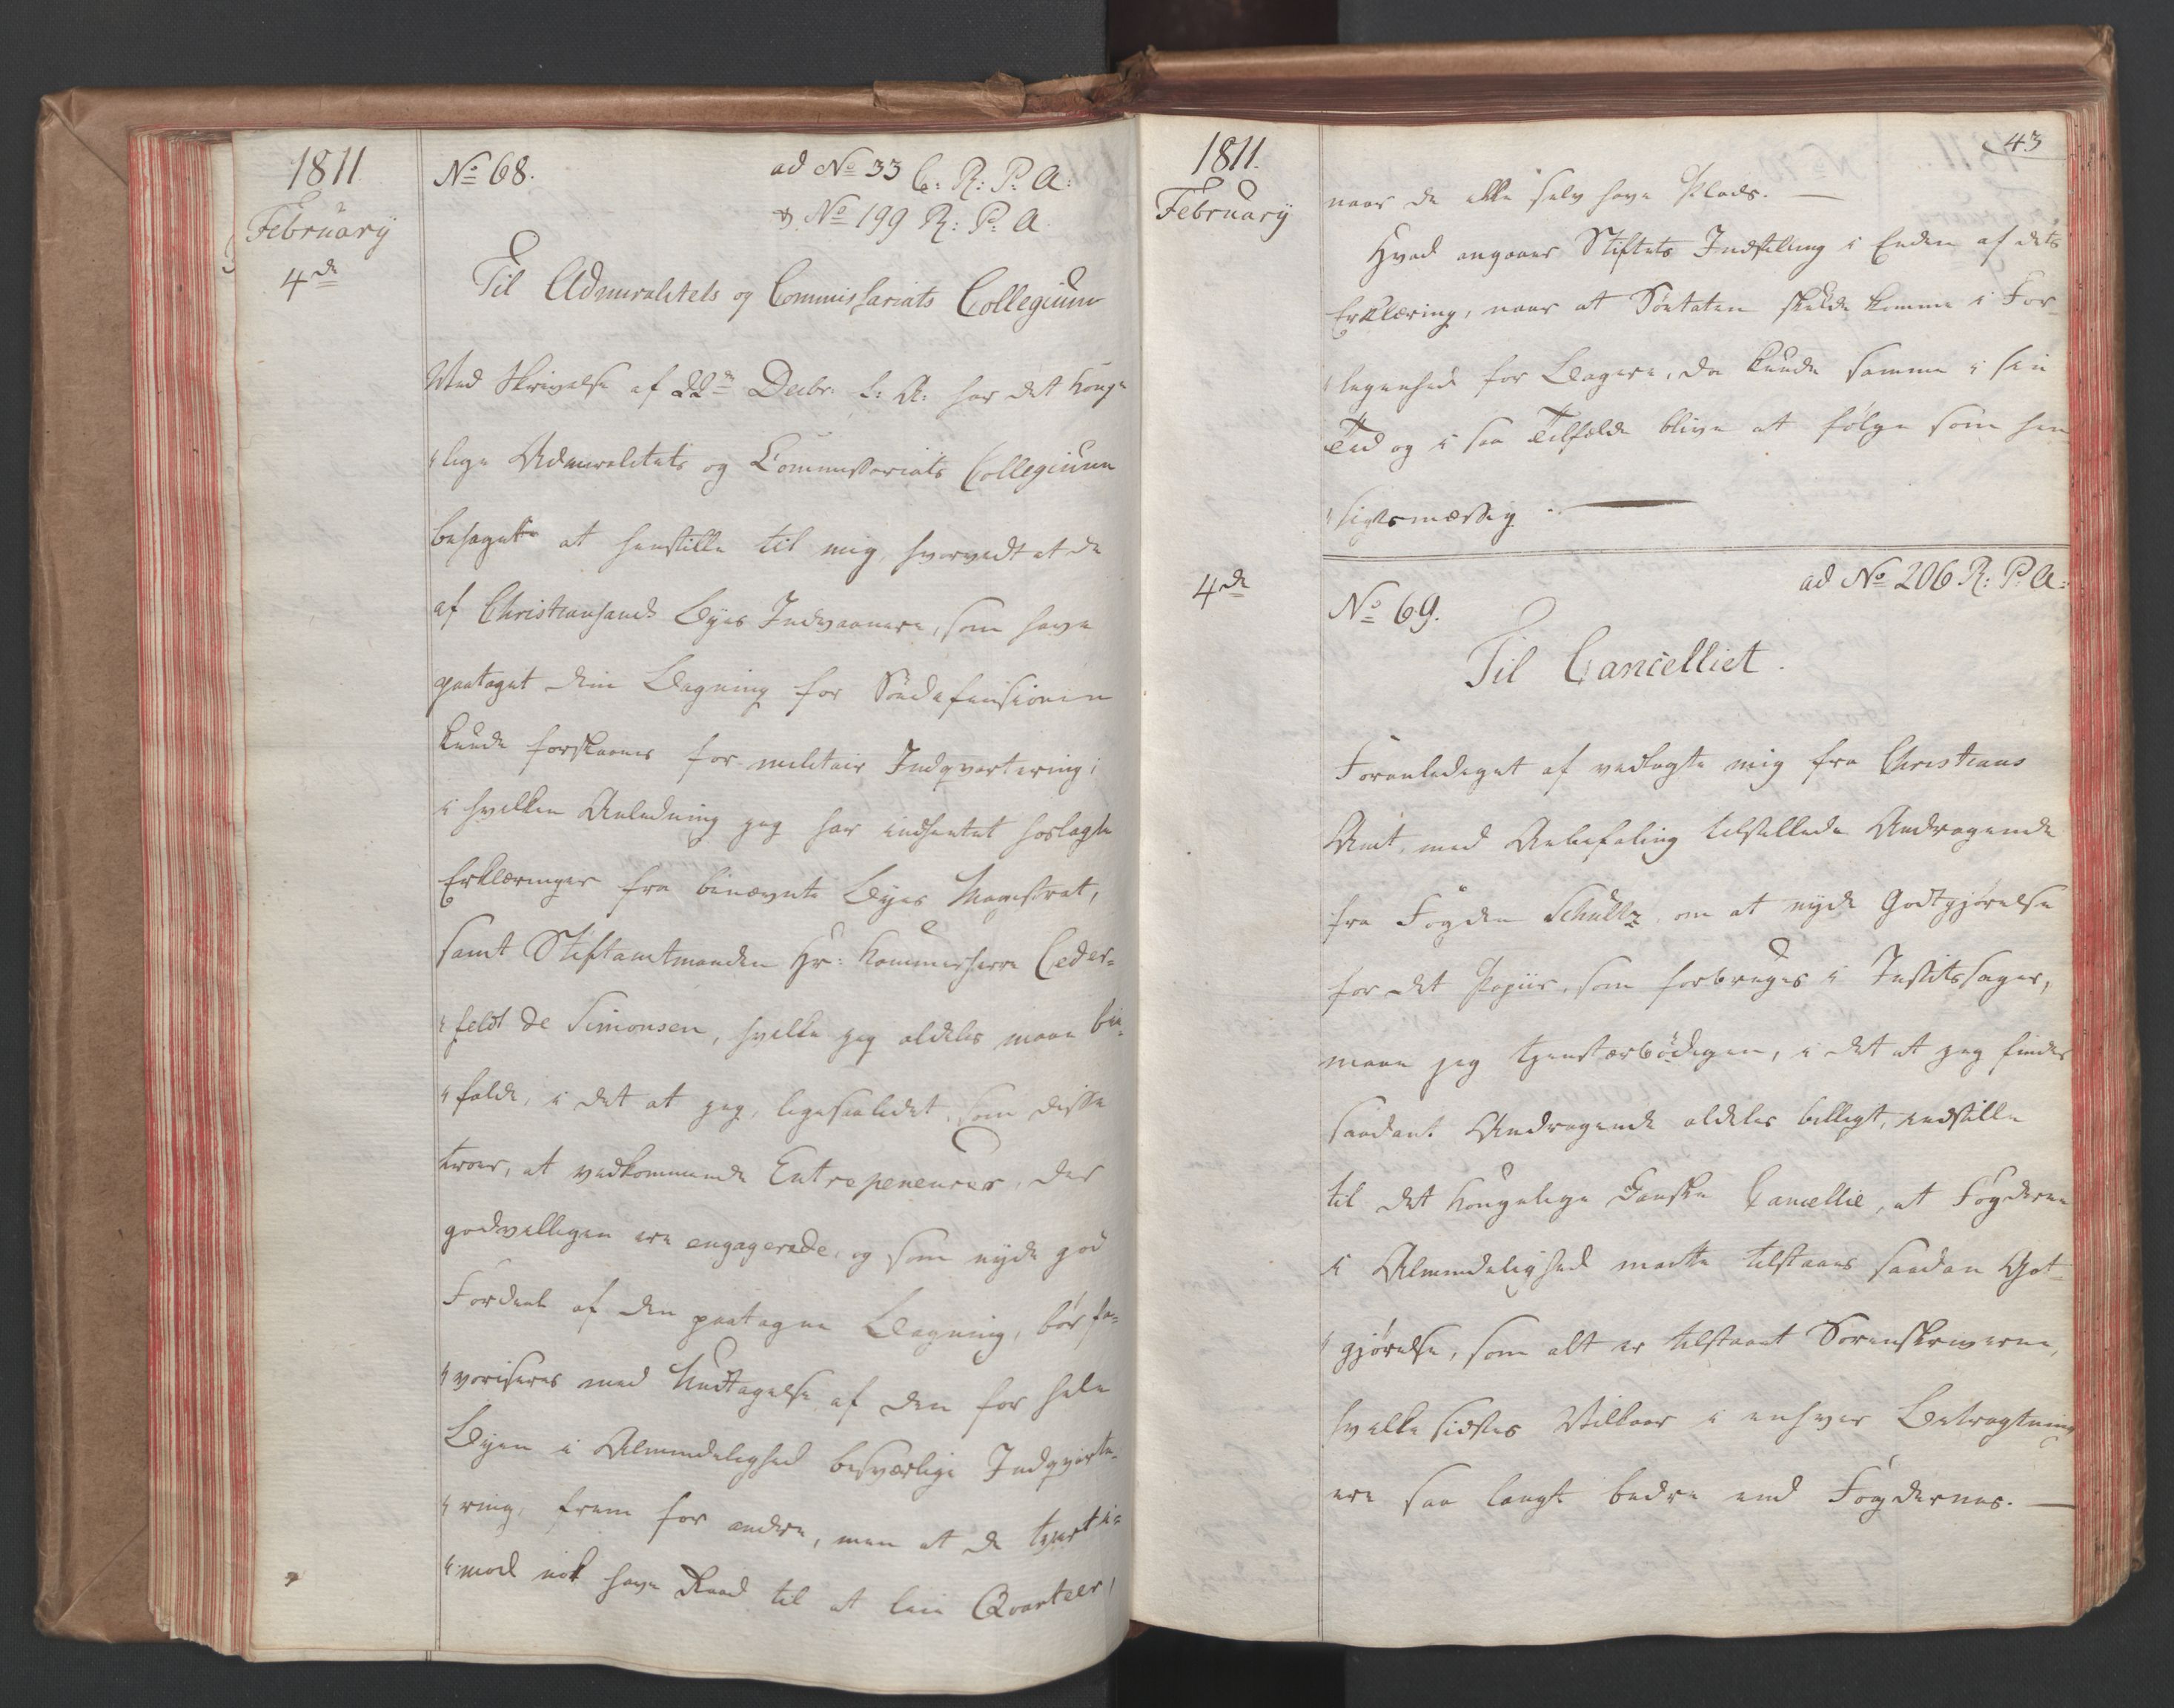 1811
February
4de
No 68.
ad No 33 C: R: P: A:
& No 199 R: P: A.
Til Admiralitets og Commissariats Collegium
Ved Skrivelse af 22de Decbr. f: A: har det Konge
lige Admiralitets og Commissariats Collegium
behaget at henstille til mig, hvorvidt at de
af Christiansands Byes Indvaanere, som have
paataget dem Bagning for Södefensionen
kunde forskaanes for militair Indqvartering;
i hvilken Anledning jeg har indhentet hoslagte
Erklæringer fra benævnte Byes Magistrat,
samt Stiftamtmanden Hr: Kammerherre Ceder-
feldt de Simonsen, hvilke jeg aldeles maae bi-
falde, i det at jeg, ligesaalidet, som disse
troer, at vedkommende Entrepeneurer, der
godvilligen ere engagerede, og som nyde god
Fordeel af den paatagne Bagning, bör fa-
voriseres med Undtagelse af den for hele
Byen i Almindelighed besværlige Indqvarte-
ring, frem for andre, men at de tvert i-
mod nok have Raad til at leie Qvarteer,
1811.
February
43
naar de ikke selv have Plads. —
Hvad angaaer Stiftets Indstilling i Enden af dets
Erklæring, naar at Söetaten skulde komme i For-
legenhed for Bagere, da kunde samme i sin
Tid og i saa Tilfælde blive at følge som hen
sigtsmæssig. —
4de
No 69.
ad No 206 R: P: A:
Til Cancelliet.
Foranlediget af vedlagte mig fra Christians
Amt, med Anbefaling tilstillede Andragende
fra Fogden Schultz, om at nyde Godtgjørelse
for det Papiir, som forbruges i Justitssager,
maae jeg tjenstærbödigen, i det at jeg finder
saadant Andragende aldeles billigt, indstille
til det Kongelige Danske Cancellie, at Fogderne
i Almindelighed maatte tilstaaes saadan Got-
gjørelse, som alt er tilstaaet Sorenskriverne,
hvilke sidstes Vilkaar i enhver Betragtning
ere saa langt bedre end Fogdernes. —